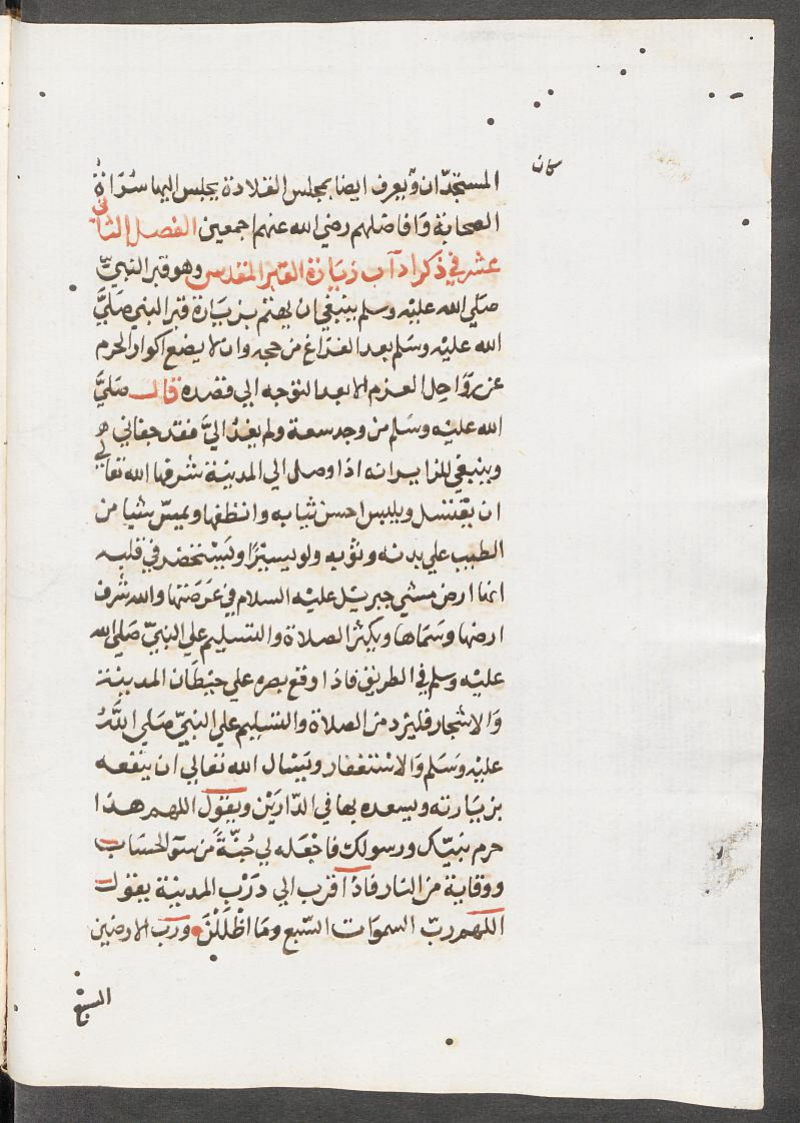 كان
المستجدّان ويعرف ايضا بمجلس القلادة يجلس اليها سُرَاةُ
الصحابة وَافاضلهم رضي الله عنهم اجمعين الفصل الثاني
عشر في ذكر اداب زيَارة القبر المقدس وهو قبر النبيّ
صَلي الله عليْه وسلم ينبغي ان يهتم بزيَارة قبر النبي صَليَّ
الله عليْه وسَلم بعد الفراغ من حجه وان لا يضع اكوار الحرم
عن روَاحل العزم الا بعد التوجه الي قصده قال صَليَّ
الله عليْه وسَلم من وجد سعة ولم يغدُ اليَّ فقد جفاني هـ
وينبغي للزايرانه اذا وصل الي المدينة شرفها الله تعالي
ان يغتسل ويلبس احسن ثيابه وانظفها ويمسّ شيا من
الطيب علي بدنه وثوبه ولو يسيْرًا ويَسْتخضر في قلبه
انها ارض مشي جبريْل عليْه السلام في عَرَصَتها والله شرف
ارضها وسَمَاها ويكثر الصلاة والتسليم علي النبيّ صَلي الله
عليْه وسلم في الطريق فاذا وقع بصره علي حيْطَان المدينة
وَالاشجار فليزد من الصلاة والتسْليم علي النبيّ صَلي اللهُ
عليْه وسَلم وَالاسْتغفار ويَسْال الله تعالي ان ينفعه
بزيَارته ويسعده بها في الدّاريْن ويقول اللهم هذا
حرم نبيّك ورسولك فاجْعَله لي جُنّةً من سوٓ الحسَاب
ووقاية من النار فاذا اقرب الي درْب المدينة يقول
اللهم ربّ السموَات السّبع ومَا اظْلَلْنَ ورَب الارضين
السبع